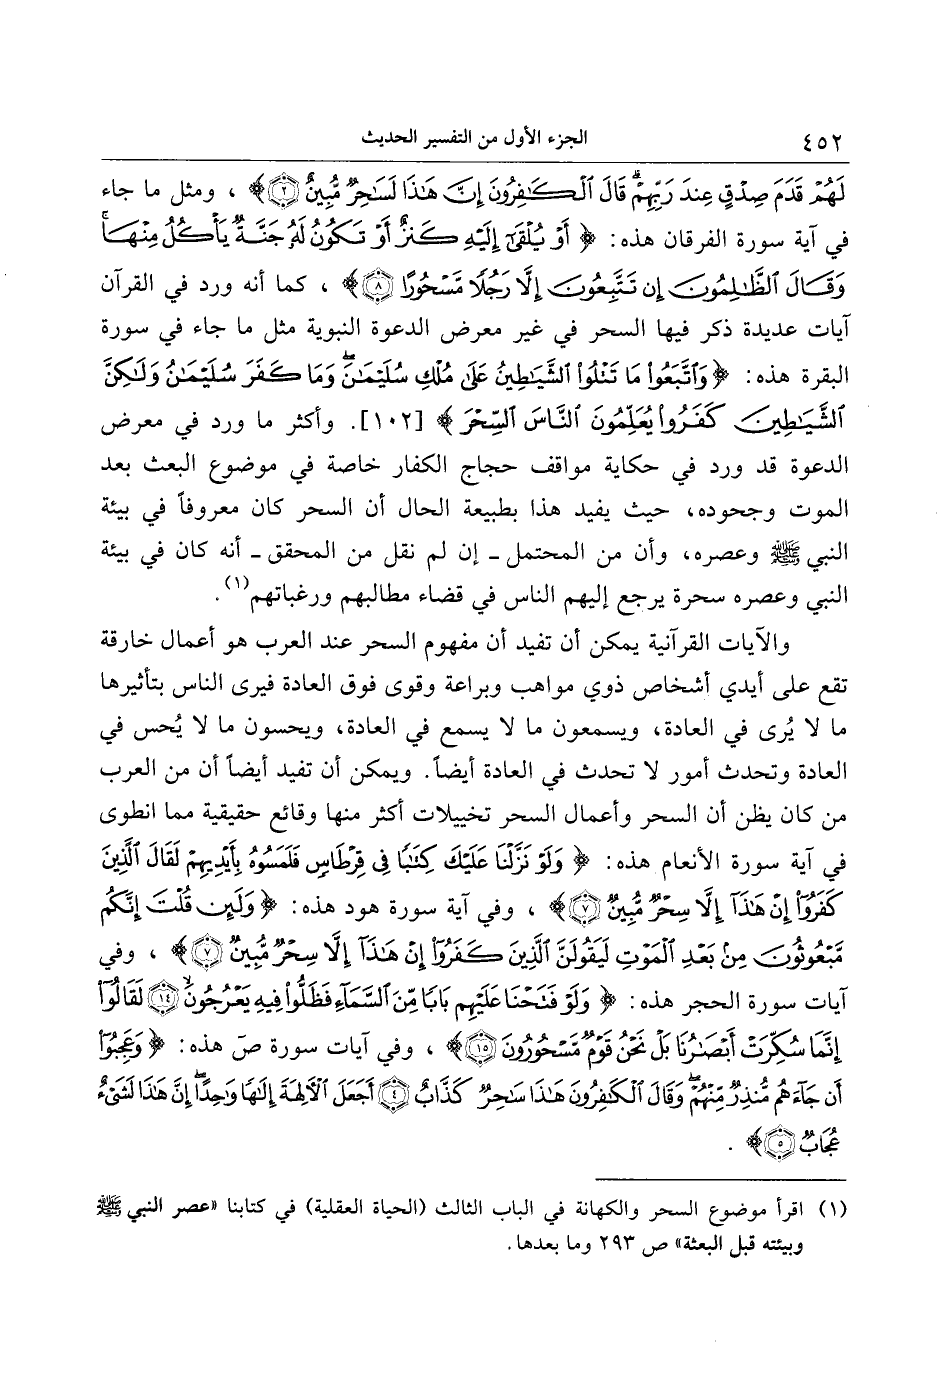 ٤٥٢ الجزء الأول من التفسير الحديث
لَهُمْ قَدَمَ صِدْقٍ عِندَ رَبِّهِمْ ۗ قَالَ ٱلْكَٰفِرُونَ إِنَّ هَٰذَا لَسَٰحِرٌ مُّبِينٌ ٢﴾ ، ومثل ما جاء
في آية سورة الفرقان هذه: ﴿أَوْ يُلْقَىٰٓ إِلَيْهِ كَنزٌ أَوْ تَكُونُ لَهُۥ جَنَّةٌ يَأْكُلُ مِنْهَا ۚ
وَقَالَ ٱلظَّٰلِمُونَ إِن تَتَّبِعُونَ إِلَّا رَجُلًا مَّسْحُورًا ٨﴾ ، كما أنه ورد في القرآن
آيات عديدة ذكر فيها السحر في غير معرض الدعوة النبوية مثل ما جاء في سورة
البقرة هذه: ﴿وَٱتَّبَعُوا۟ مَا تَتْلُوا۟ ٱلشَّيَٰطِينُ عَلَىٰ مُلْكِ سُلَيْمَٰنَ ۖ وَمَا كَفَرَ سُلَيْمَٰنُ وَلَٰكِنَّ
ٱلشَّيَٰطِينَ كَفَرُوا۟ يُعَلِّمُونَ ٱلنَّاسَ ٱلسِّحْرَ﴾ [١٠٢]. وأكثر ما ورد في معرض
الدعوة قد ورد في حكاية مواقف حجاج الكفار خاصة في موضوع البعث بعد
الموت وجحوده، حيث يفيد هذا بطبيعة الحال أن السحر كان معروفاً في بيئة
النبي ﷺ وعصره، وأن من المحتمل ـ إن لم نقل من المحقق ـ أنه كان في بيئة
النبي وعصره سحرة يرجع إليهم الناس في قضاء مطالبهم ورغباتهم(١).
والآيات القرآنية يمكن أن تفيد أن مفهوم السحر عند العرب هو أعمال خارقة
تقع على أيدي أشخاص ذوي مواهب وبراعة وقوى فوق العادة فيرى الناس بتأثيرها
ما لا يُرى في العادة، ويسمعون ما لا يسمع في العادة، ويحسون ما لا يُحس في
العادة وتحدث أمور لا تحدث في العادة أيضاً. ويمكن أن تفيد أيضاً أن من العرب
من كان يظن أن السحر وأعمال السحر تخييلات أكثر منها وقائع حقيقية مما انطوى
في آية سورة الأنعام هذه: ﴿وَلَوْ نَزَّلْنَا عَلَيْكَ كِتَٰبًا فِى قِرْطَاسٍ فَلَمَسُوهُ بِأَيْدِيهِمْ لَقَالَ ٱلَّذِينَ
كَفَرُوٓا۟ إِنْ هَٰذَآ إِلَّا سِحْرٌ مُّبِينٌ ٧﴾ ، وفي آية سورة هود هذه: ﴿وَلَئِن قُلْتَ إِنَّكُم
مَّبْعُوثُونَ مِنۢ بَعْدِ ٱلْمَوْتِ لَيَقُولَنَّ ٱلَّذِينَ كَفَرُوٓا۟ إِنْ هَٰذَآ إِلَّا سِحْرٌ مُّبِينٌ ٧﴾ ، وفي
آيات سورة الحجر هذه: ﴿وَلَوْ فَتَحْنَا عَلَيْهِم بَابًا مِّنَ ٱلسَّمَآءِ فَظَلُّوا۟ فِيهِ يَعْرُجُونَ ١٤ لَقَالُوٓا۟
إِنَّمَا سُكِّرَتْ أَبْصَٰرُنَا بَلْ نَحْنُ قَوْمٌ مَّسْحُورُونَ ١٥﴾ ، وفي آيات سورة صۤ هذه: ﴿وَعَجِبُوٓا۟
أَن جَآءَهُم مُّنذِرٌ مِّنْهُمْ ۖ وَقَالَ ٱلْكَٰفِرُونَ هَٰذَا سَٰحِرٌ كَذَّابٌ ٤ أَجَعَلَ ٱلْءَالِهَةَ إِلَٰهًا وَٰحِدًا ۖ إِنَّ هَٰذَا لَشَىْءٌ
عُجَابٌ ٥﴾ .
(١) اقرأ موضوع السحر والكهانة في الباب الثالث (الحياة العقلية) في كتابنا «عصر النبي ﷺ
وبيئته قبل البعثة» ص ٢٩٣ وما بعدها.